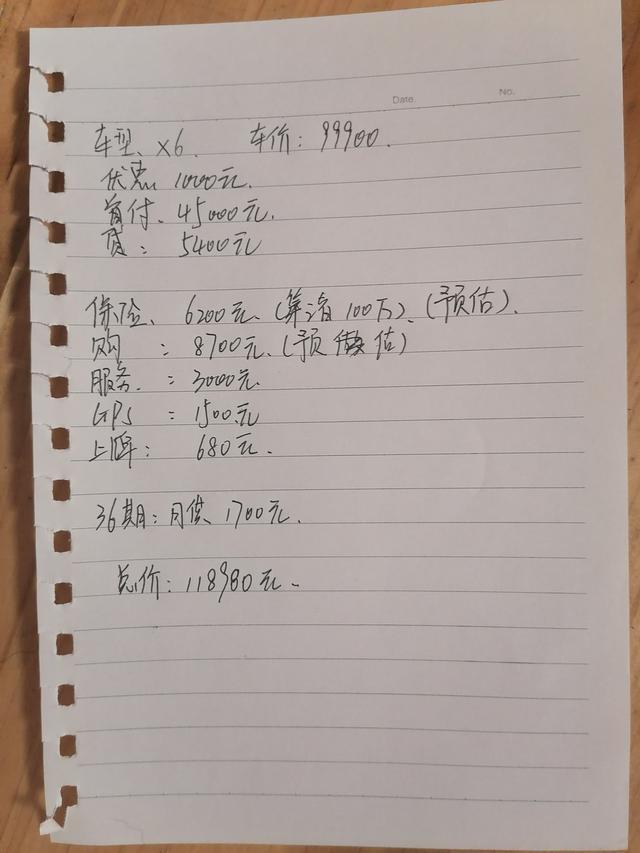 Date.
No.
车型、X6. 车价：99900.
优惠 1000元.
首付、45000元.
贷：5400元
保险、6200元、(第三者100万)、(预估).
购：8700元.(预估)
服务：3000元.
GPS：1500元
上牌：680元.
36期：月供 1700元.
总价：118980元.